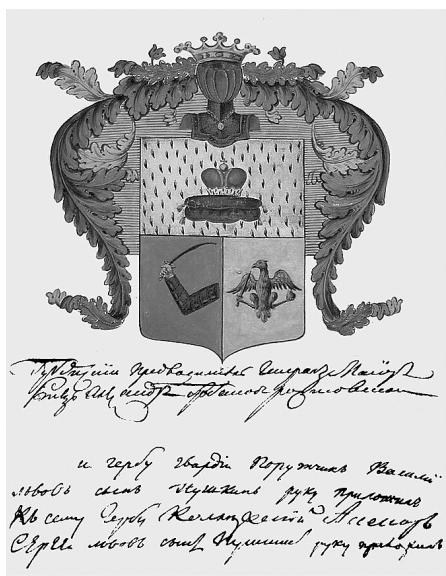 Губернскій предводитель Генералъ Маіоръ
Князь Александръ
и гербу гвардіи Поручикъ Василій
Львовъ сынъ Пушкинъ руку приложилъ
Къ сему Гербу Коллежскій Асесоръ
Сергей Львовъ сынъ Пушкинъ руку приложилъ